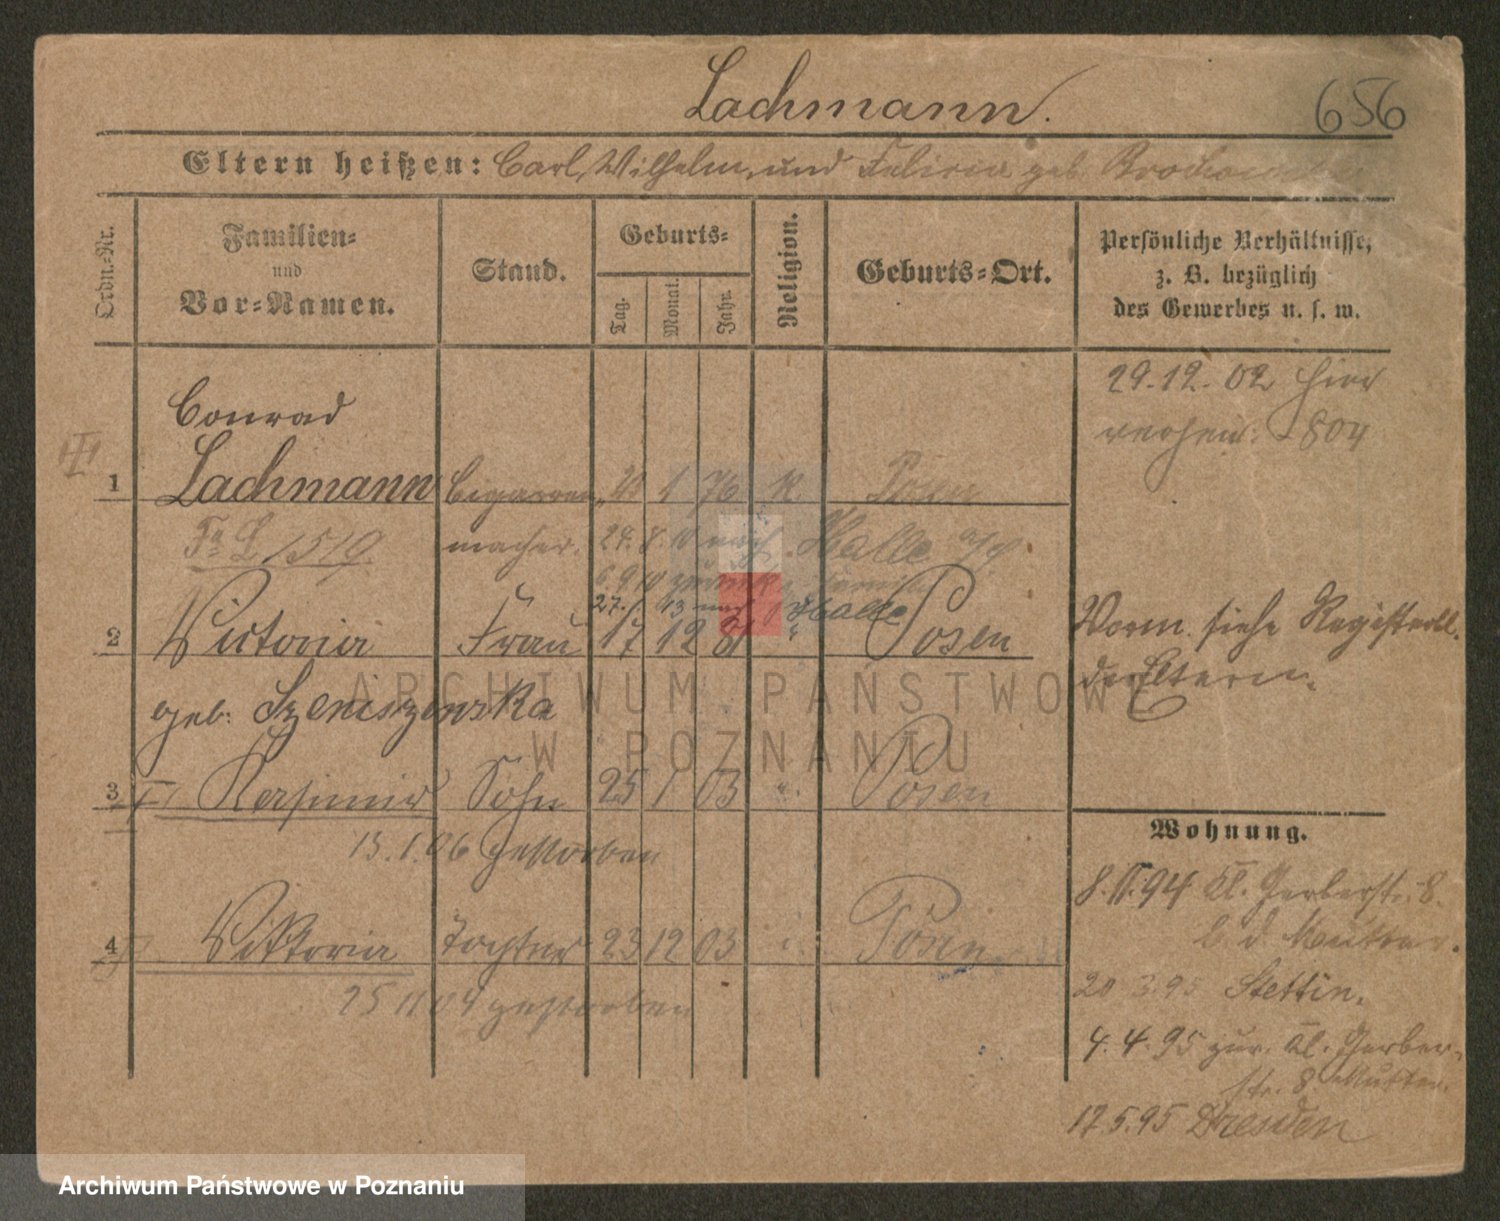 Lachmann.
656
Eltern heißen: Carl, Wilhelm, und Felicia geb.
Ordn.-Nr.
Familien-
und
Vor-Namen.
Stand.
Geburts-
Tag.
Monat.
Jahr.
Religion.
Geburts-Ort.
Persönliche Verhältnisse,
z. B. bezüglich
des Gewerbes u. s. w.
29.12.02 hier
804
Conrad
1 Lachmann Cigarren 1 76 K. Posen
macher. nach Halle a/S
1519
6.9.10 zurück
27. 13 nach Halle
2 Victoria Frau 17 12 81 " Posen
geb. Szeniszewska
Vorm. siehe Registerbl.
der Eltern.
3 Kasimir Sohn 25 1 03 " Posen
13.1.06 gestorben
4 Viktoria Tochter 23 12 03 Posen
25 11 04 gestorben
Wohnung.
8.II.94 Kl. Gerberstr. 8.
b. d. Mutter.
20 3.95 Stettin.
4.4.95 zur. Kl. Gerber-
str. 8 Mutter.
17.5.95 Dresden
ARCHIWUM PAŃSTWOWE
W POZNANIU
Archiwum Państwowe w Poznaniu